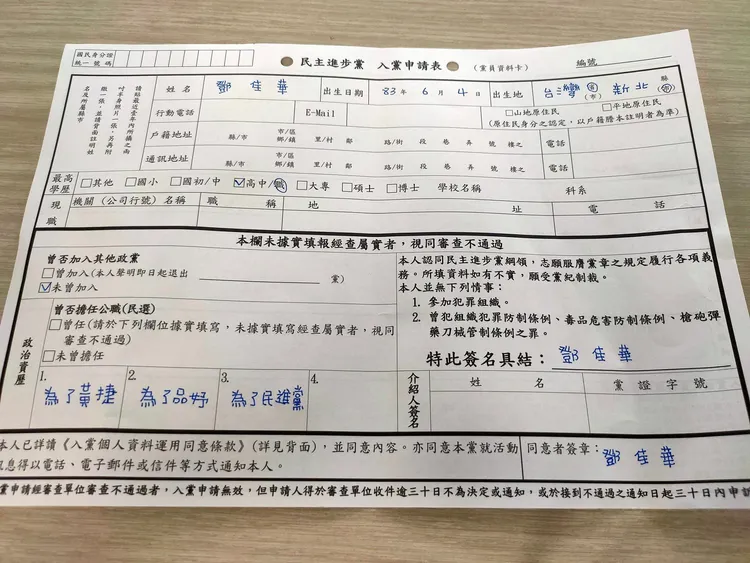 國民身分證
統一號碼
民主進步黨 入黨申請表
(黨員資料卡)
編號
請貼最近壹年內所攝之兩
吋半身照片一張,另再附
繳一張,並請背面註明姓
名及所屬縣市
姓名 鄧佳華 出生日期 83年6月4日 出生地 台灣省(市) 新北縣(市)
行動電話 E-Mail □山地原住民 □平地原住民
(原住民身分之認定,以戶籍謄本註明者為準)
戶籍地址 縣/市 市/區 鄉/鎮 里/村 鄰 路/街 段 巷 弄 號 樓之 電話
通訊地址 縣/市 市/區 鄉/鎮 里/村 鄰 路/街 段 巷 弄 號 樓之 電話
最高學歷 □其他 □國小 □國初/中 ☑高中/職 □大專 □碩士 □博士 學校名稱 科系
現職 機關(公司行號)名稱 職稱 地址 電話
本欄未據實填報經查屬實者,視同審查不通過
曾否加入其他政黨
□曾加入(本人聲明即日起退出 黨)
☑未曾加入
政治資歷
曾否擔任公職(民選)
□曾任(請於下列欄位據實填寫,未據實填寫經查屬實者,視同
審查不通過)
□未曾擔任
1. 為了黃捷
2. 為了品妤
3. 為了民進黨
4.
本人認同民主進步黨綱領,志願服膺黨章之規定履行各項義
務。所填資料如有不實,願受黨紀制裁。
本人並無下列情事:
1. 參加犯罪組織。
2. 曾犯組織犯罪防制條例、毒品危害防制條例、槍砲彈
藥刀械管制條例之罪。
特此簽名具結: 鄧佳華
介紹人簽名 姓名 黨證字號
本人已詳讀《入黨個人資料運用同意條款》(詳見背面),並同意內容。亦同意本黨就活動
訊息得以電話、電子郵件或信件等方式通知本人。
同意者簽章: 鄧佳華
黨申請經審查單位審查不通過者,入黨申請無效,但申請人得於審查單位收件逾三十日不為決定或通知,或於接到不通過之通知日起三十日內申訴